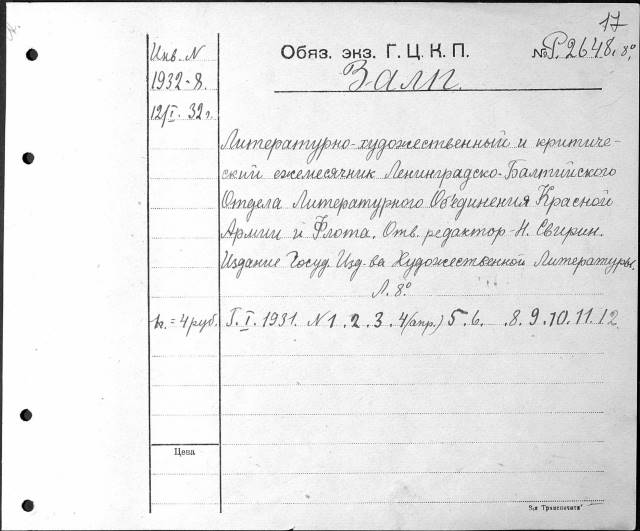 17
Инв. N
1932-8.
12/I. 32 г.
Обяз. экз. Г. Ц. К. П.
№ Р. 2648. 8°
Залп.
Литературно-художественный и критиче-
ский ежемесячник Ленинградско-Балтийского
Отдела Литературного Объединения Красной
Армии и Флота. Отв. редактор - Н. Свирин.
Издание Госуд. Изд-ва Художественной Литературы.
Л. 8°
= 4 руб. Г. I. 1931. N 1. 2. 3. 4 (апр.) 5. 6. . 8. 9. 10. 11. 12
Цена
"Транспечати"